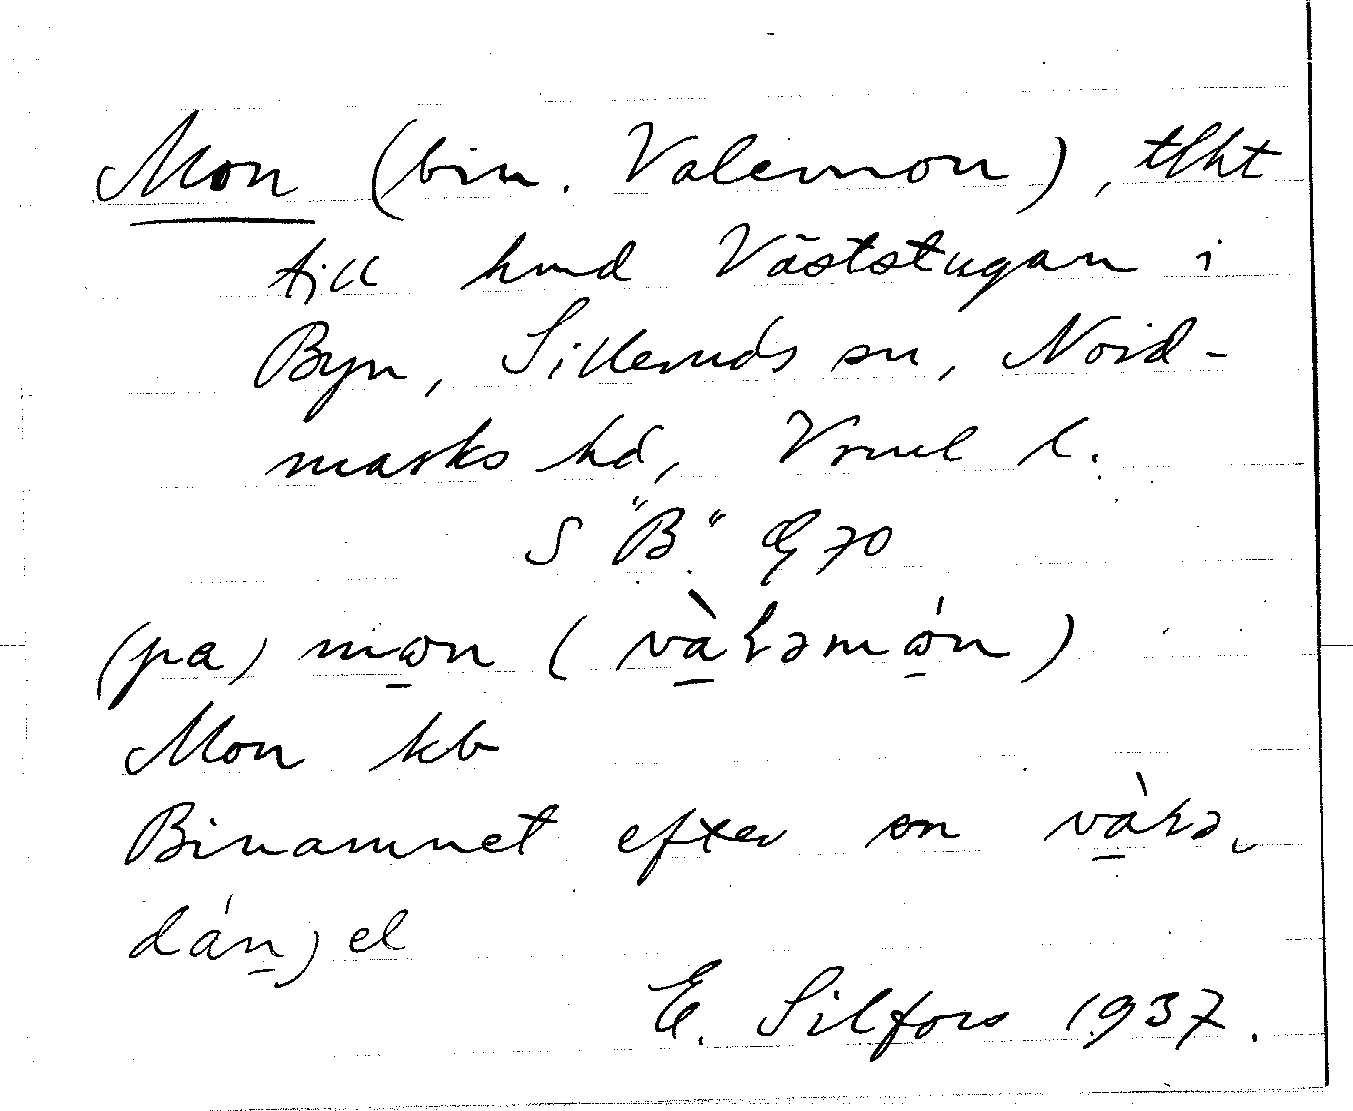 Mon (bin. Valemon), tlht
till hmd Väststugan i
Byn, Silleruds sn, Nord-
marks hd, Vrml l.
S "B" Eg 70
(pa) mɷn (vàɽəmɷ́n)
Mon kb
Binamnet efter en vàɽə
dánjel
E. Silfors 1937.